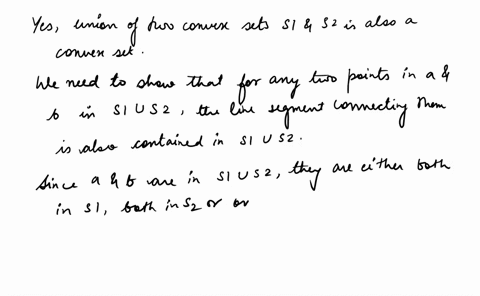 Yes, union of two convex sets S1 & S2 is also a
convex set.
We need to show that for any two points in a &
b in S1 U S2, the line segment connecting them
is also contained in S1 U S2.
Since a & b are in S1 U S2, they are either both
in S1, both in S2 or or